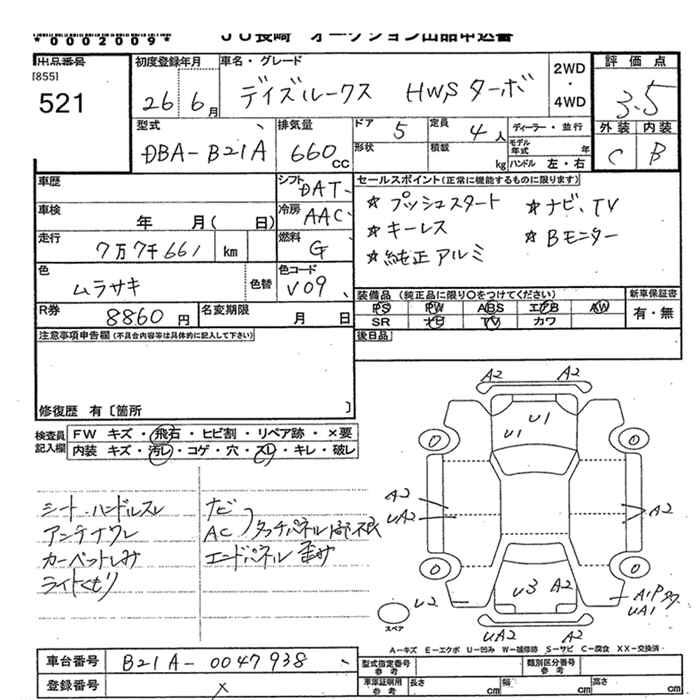 *0002009*
JU長崎 オークション出品申込書
出品番号
[855]
521
初度登録年月
26年6月
車名・グレード
デイズルークス HWS ターボ
2WD
・
4WD
評価点
3.5
外装 内装
C B
型式
DBA-B21A
排気量
660CC
ドア 5
形状
定員 4人
積載 kg
ディーラー・並行
モデル年式 年
ハンドル 左・右
車歴
シフト DAT
車検 年 月( 日)
冷房 AAC
走行 7万7千661 km
燃料 G
色 ムラサキ 色替
色コード V09
R券 8860円
名変期限 月 日
セールスポイント(正常に機能するものに限ります)
☆ プッシュスタート ☆ ナビ、TV
☆ キーレス ☆ Bモニター
☆ 純正アルミ
装備品 (純正品に限り○をつけてください) 新車保証書
PS PW ABS エアB AW 有・無
SR ナビ TV カワ
後日品
注意事項申告欄(不具合内容等は具体的に記入して下さい)
修復歴 有〔箇所 〕
検査員記入欄
FW キズ・飛石・ヒビ割・リペア跡・×要
内装 キズ・汚レ・コゲ・穴・スレ・キレ・破レ
シート・ハンドルスレ
アンテナワレ
カーペットしみ
ライトくもり
ナビ
AC タッチパネル
エンドパネル 歪み
A2 A2
U1 U1
0 0
A2
UA2
A2
0 0
U3 A2
U2
A1P
UA1
UA2 A2
スペア
A-キズ E-エクボ U-凹み W-補修跡 S-サビ C-腐食 XX-交換済
車台番号 B21A-0047938
登録番号 ×
型式指定番号 参考
類別区分番号 参考
車庫証明用 参考 長さ cm 幅 cm 高さ cm